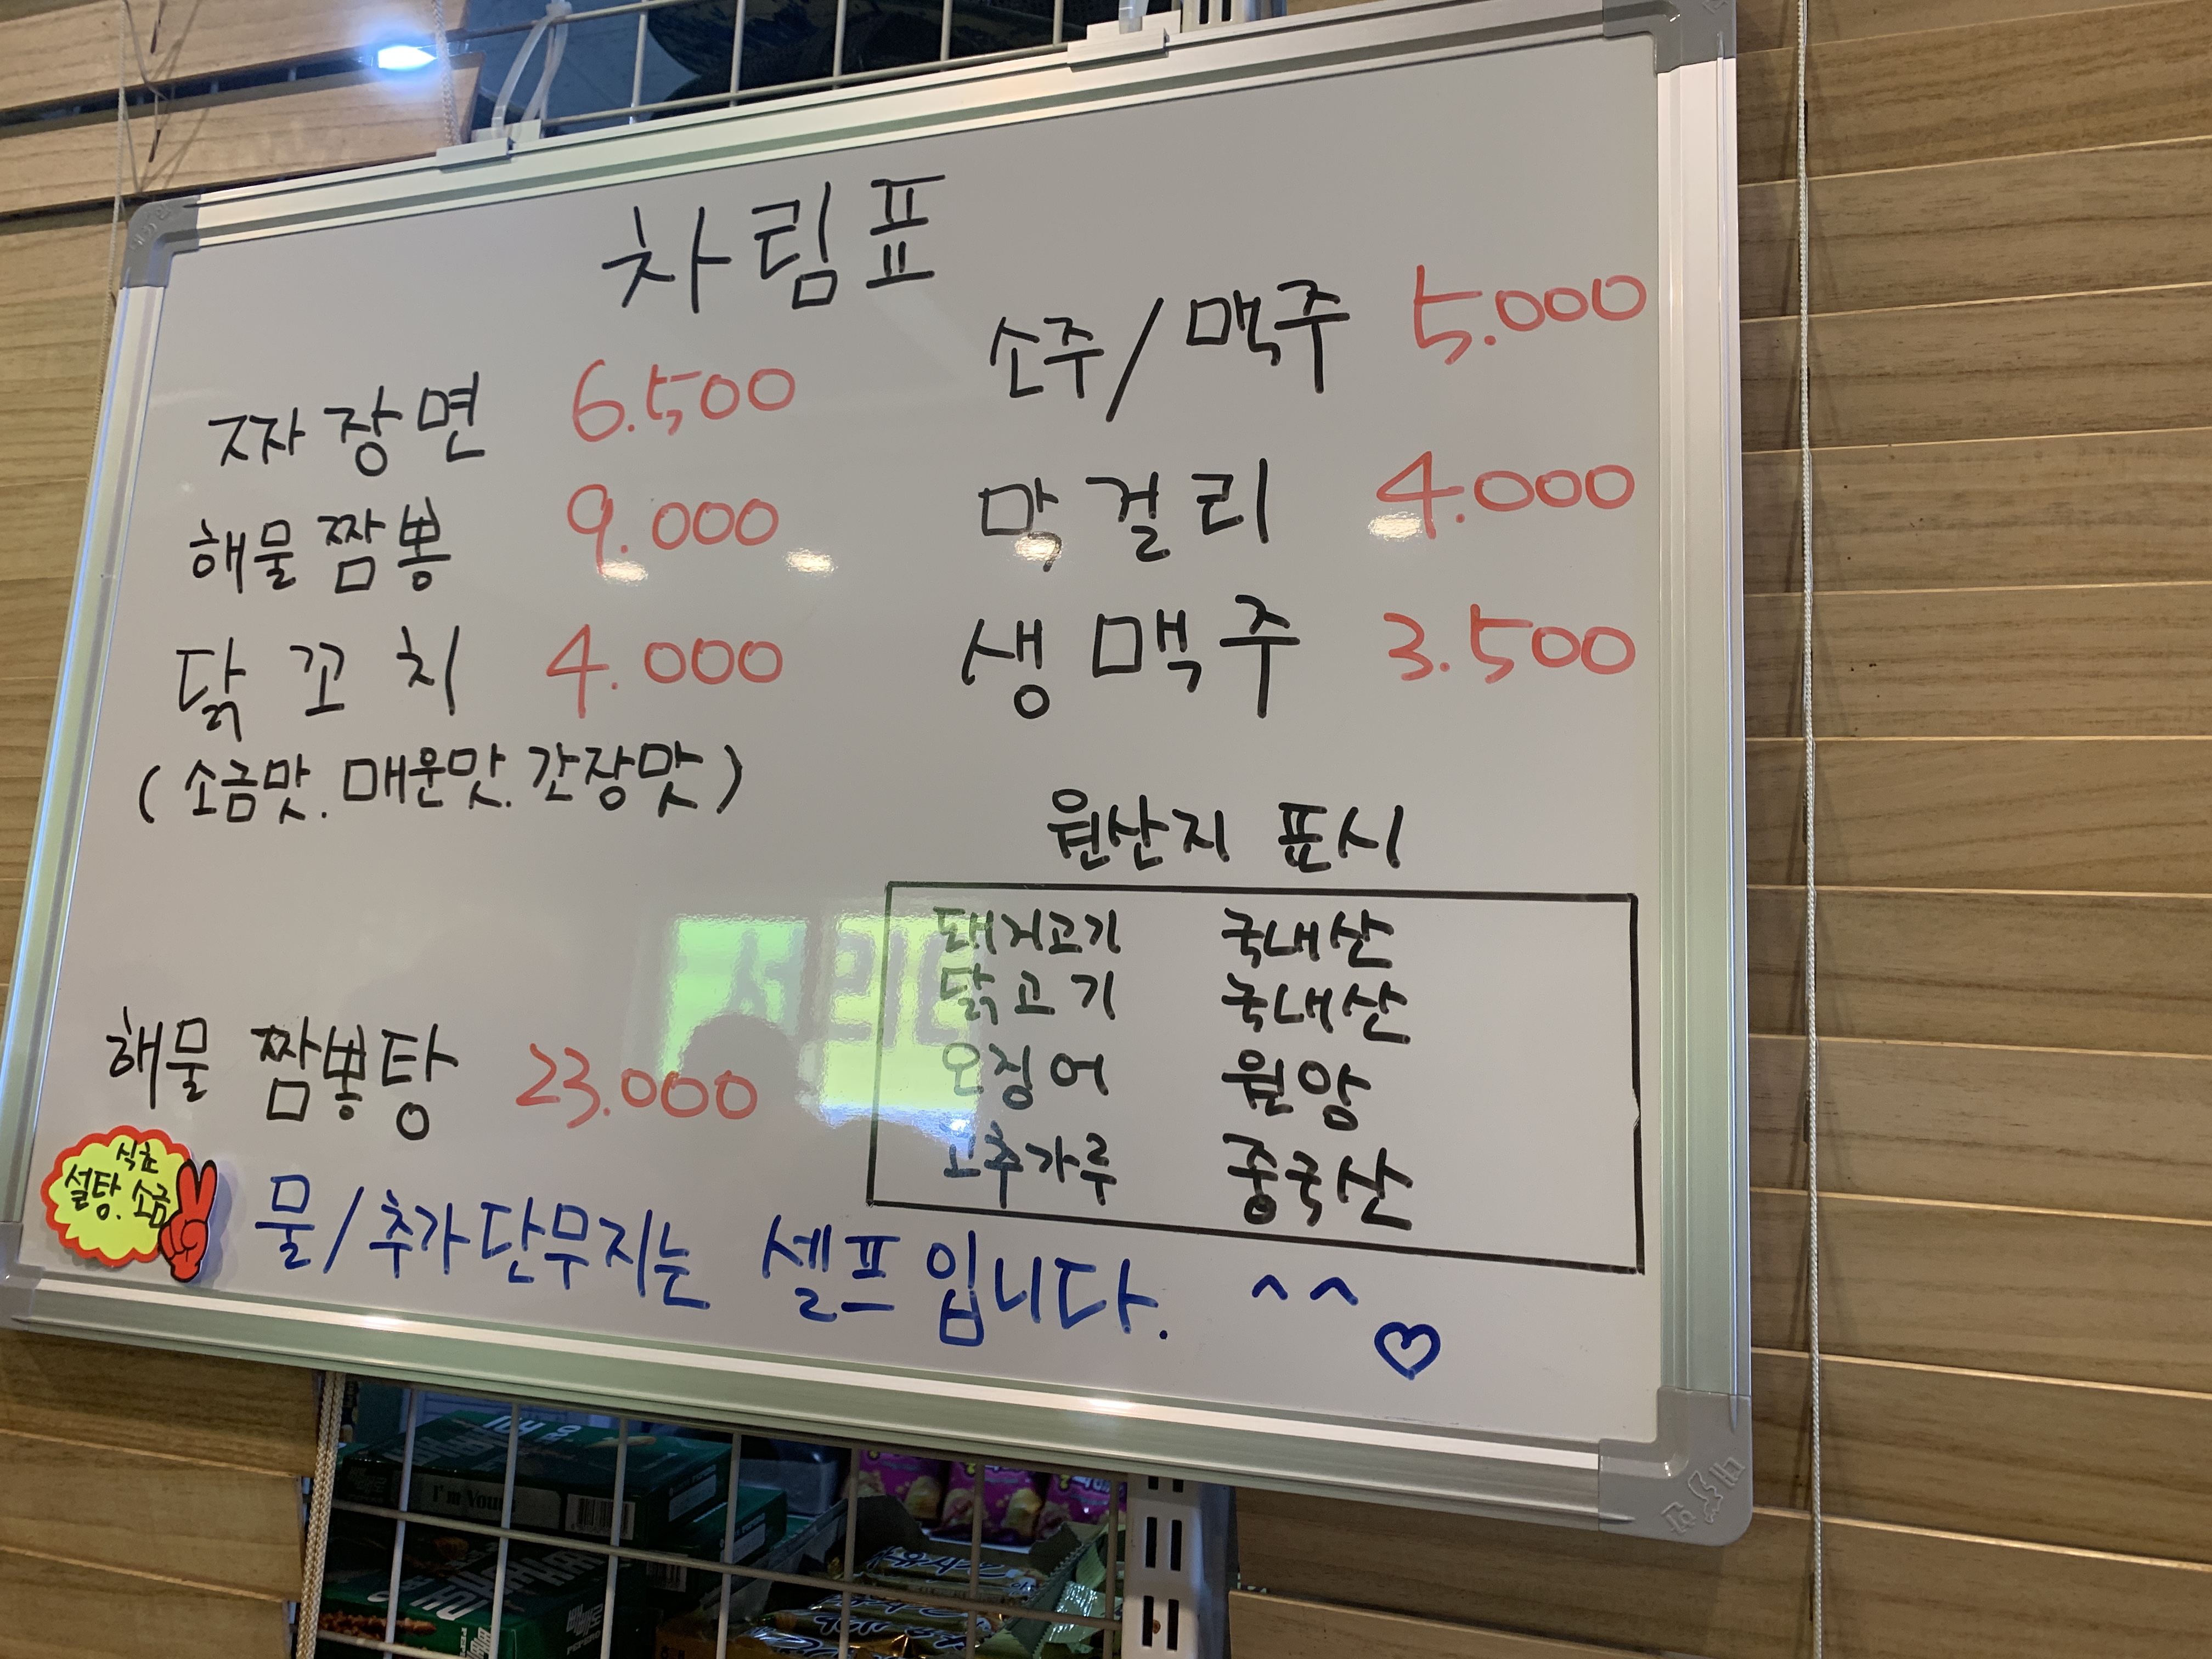 차림표
짜장면 6.500
해물짬뽕 9.000
닭꼬치 4.000
(소금맛. 매운맛. 간장맛)
해물 짬뽕탕 23.000
소주/맥주 5.000
막걸리 4.000
생맥주 3.500
원산지 표시
돼지고기 국내산
닭고기 국내산
오징어 원양
고추가루 중국산
식초
설탕. 소금
물/추가단무지는 셀프입니다. ^^
I'm Your